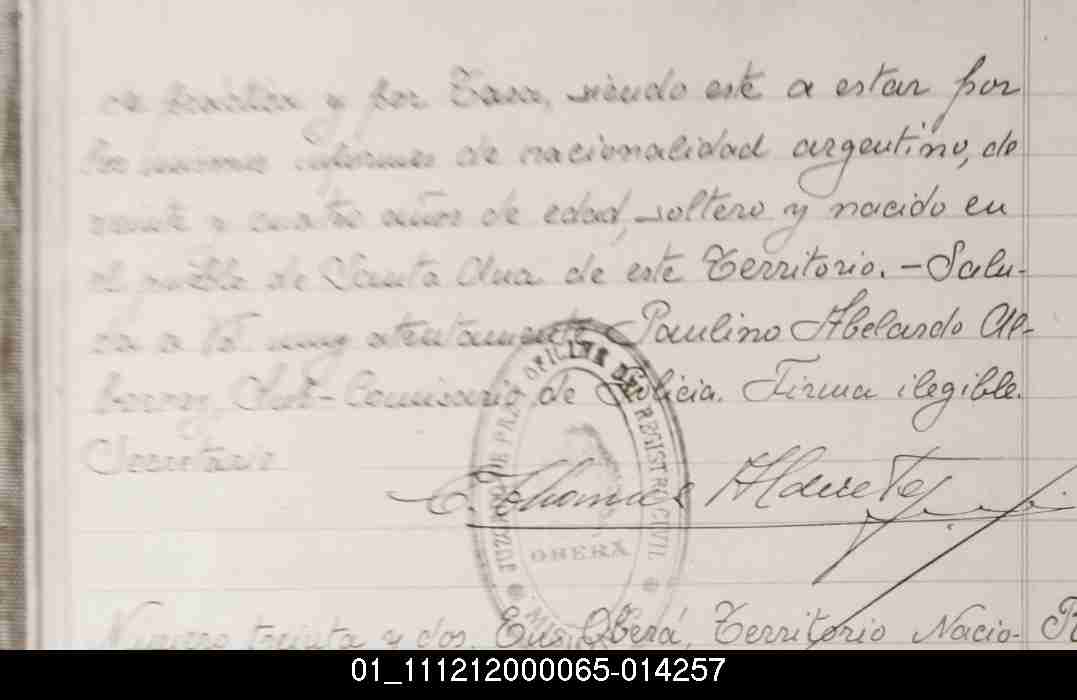 y por Tasa, siendo este a estar por
los mismos informes de nacionalidad argentino, de
veinte y cuatro años de edad, soltero y nacido en
el pueblo de Santa Ana de este Territorio. - Salu-
da a Vd. muy atentamente Paulino Abelardo Al-
Sub-Comisario de Policia. Firma ilegible.
Secretario
JUZGADO DE PAZ OFICINA DEL REGISTRO CIVIL
OBERA
Numero treinta y dos. En Oberá, Territorio Nacio-
01_111212000065-014257